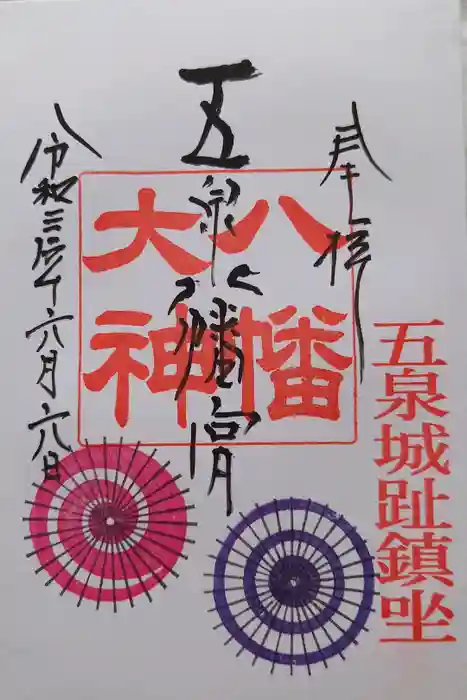 奉拝
五泉城趾鎮坐
八幡
大神
五泉八幡宮
令和三年六月六日